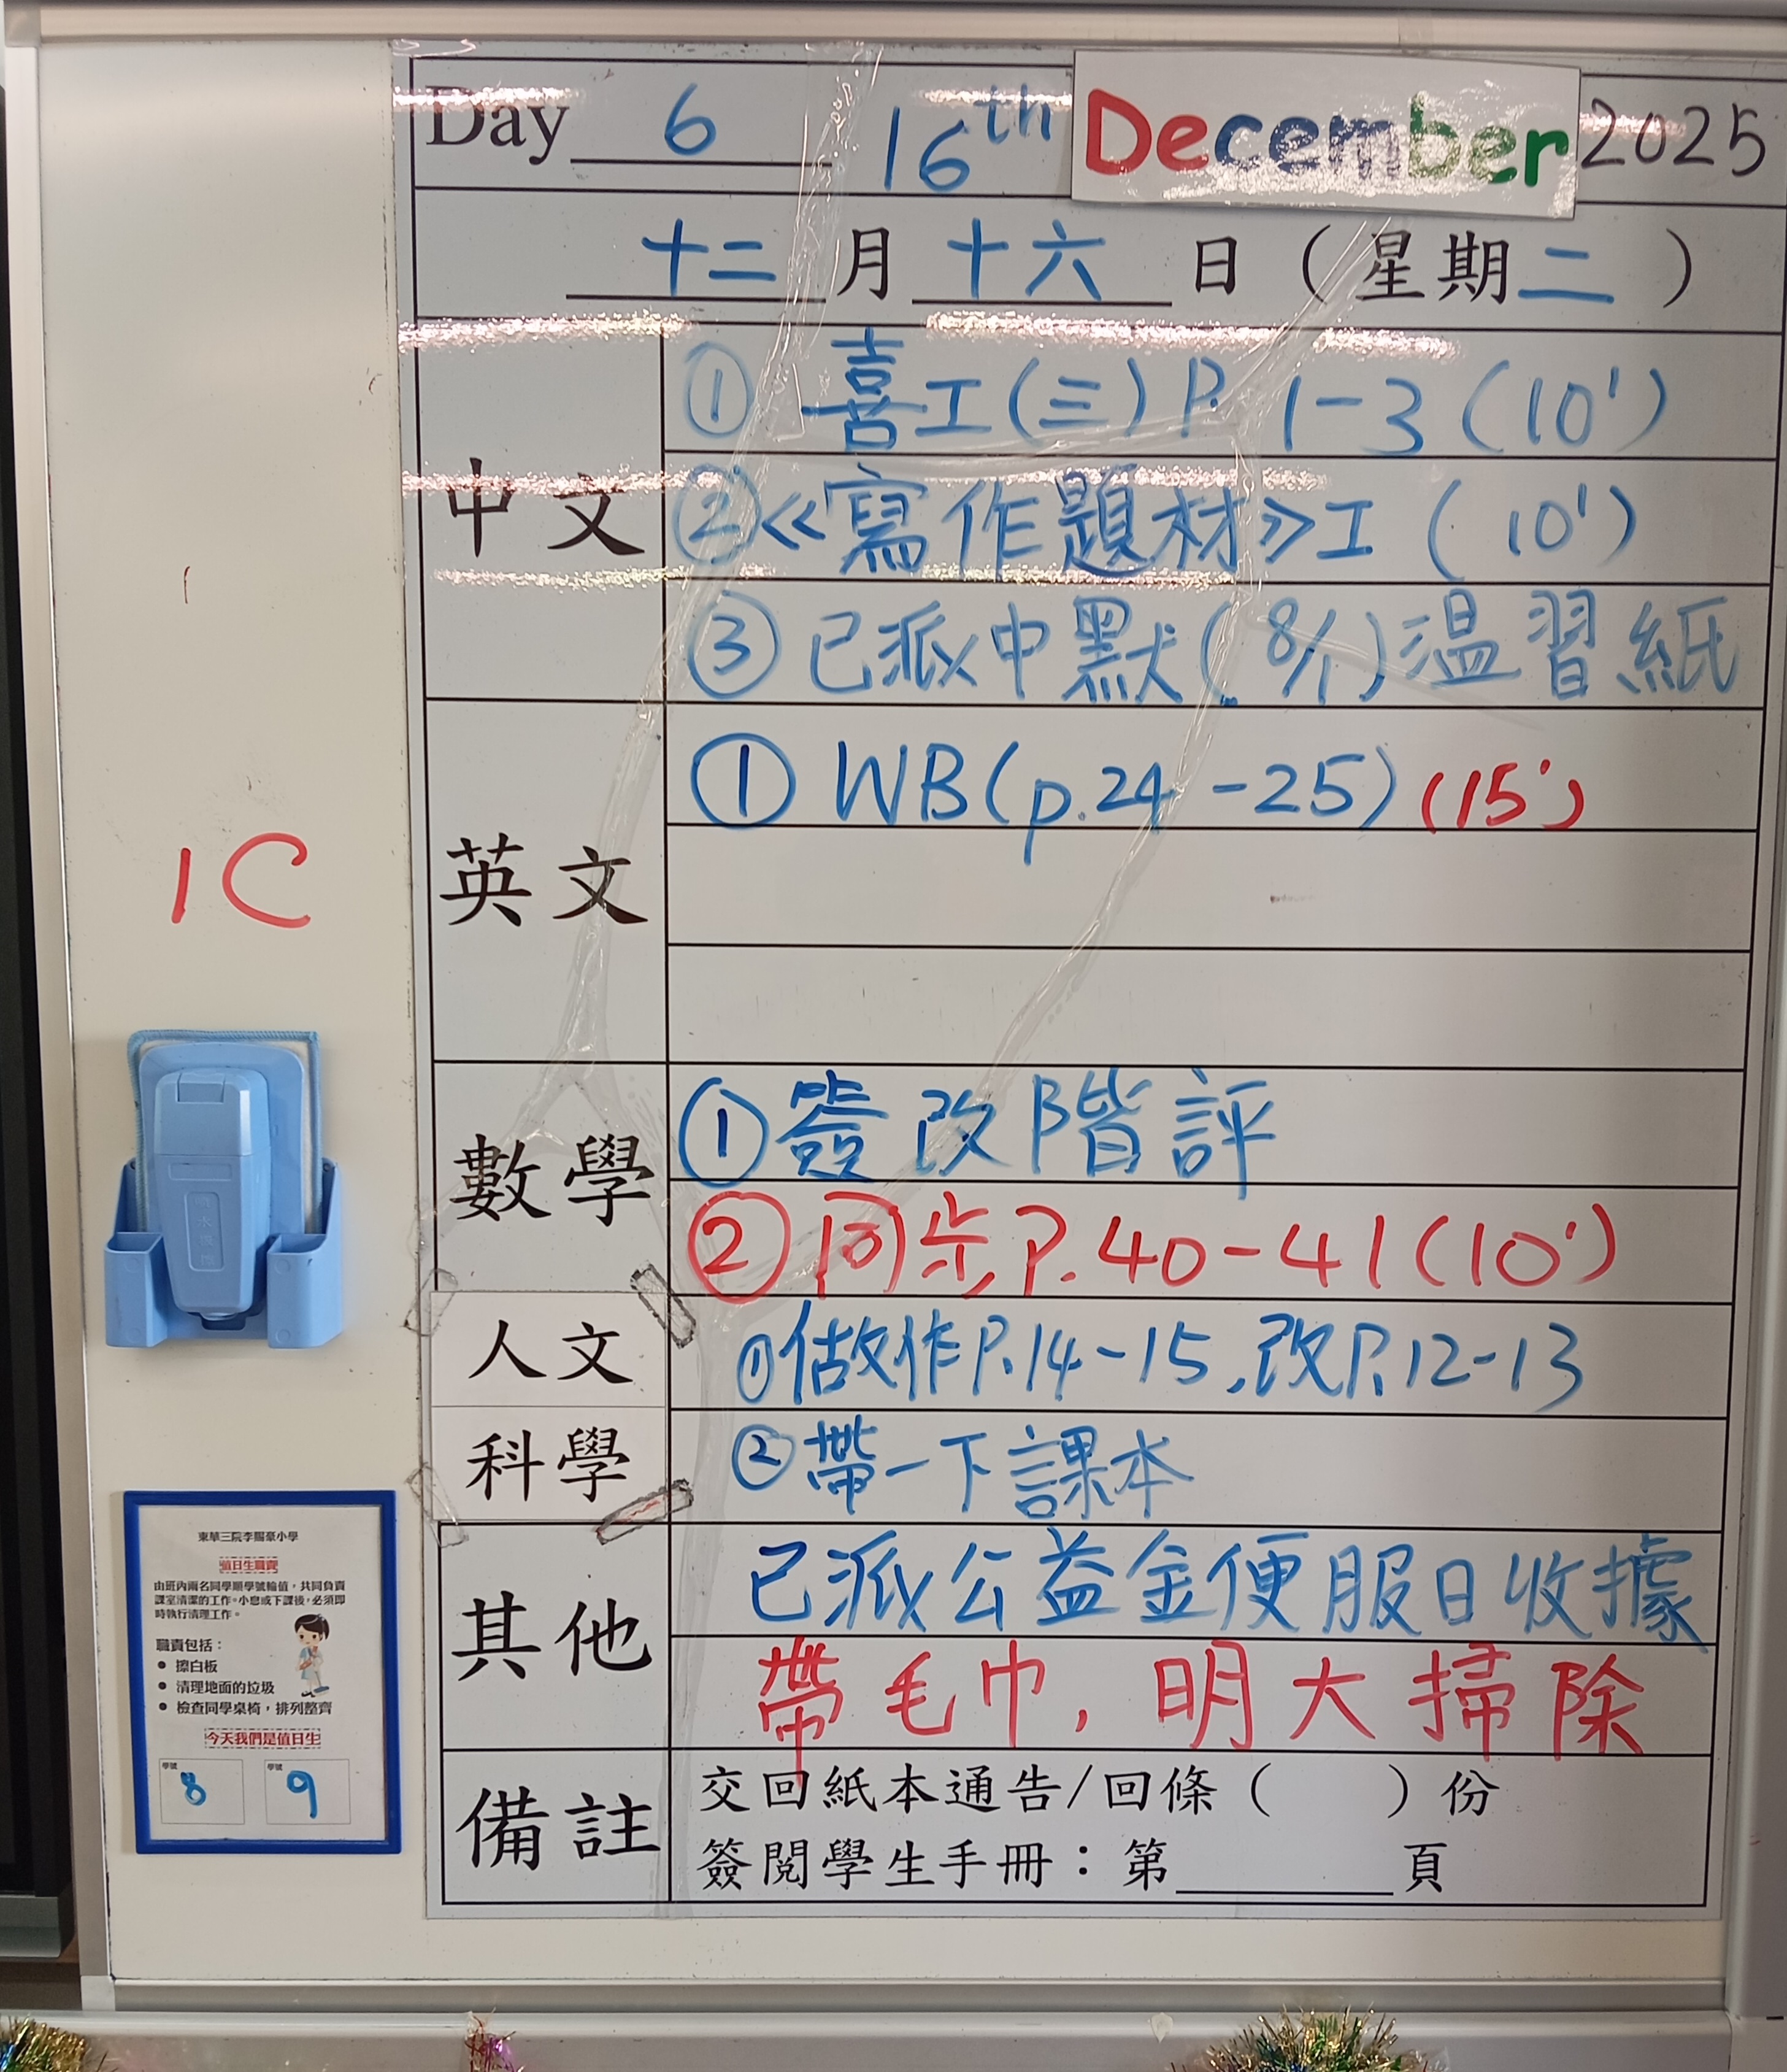 Day 6 16th December 2025
十二月十六日（星期二）
中文
① 喜工(三) P. 1-3 (10')
②《寫作題材》工 (10')
③ 已派中默(8/1)温習紙
英文
① WB(p.24-25) (15')
1C
數學
① 簽改階評
② 同步P.40-41(10')
人文
科學
① 做作P.14-15,改P.12-13
② 帶一下課本
其他
已派公益金便服日收據
帶毛巾,明大掃除
備註
交回紙本通告/回條（ ）份
簽閱學生手冊：第 頁
東華三院李賜豪小學
值日生職責
由班內兩名同學順學號輪值，共同負責
課室清潔的工作。小息或下課後，必須即
時執行清理工作。
職責包括：
• 擦白板
• 清理地面的垃圾
• 檢查同學桌椅，排列整齊
今天我們是值日生
學號 8
學號 9